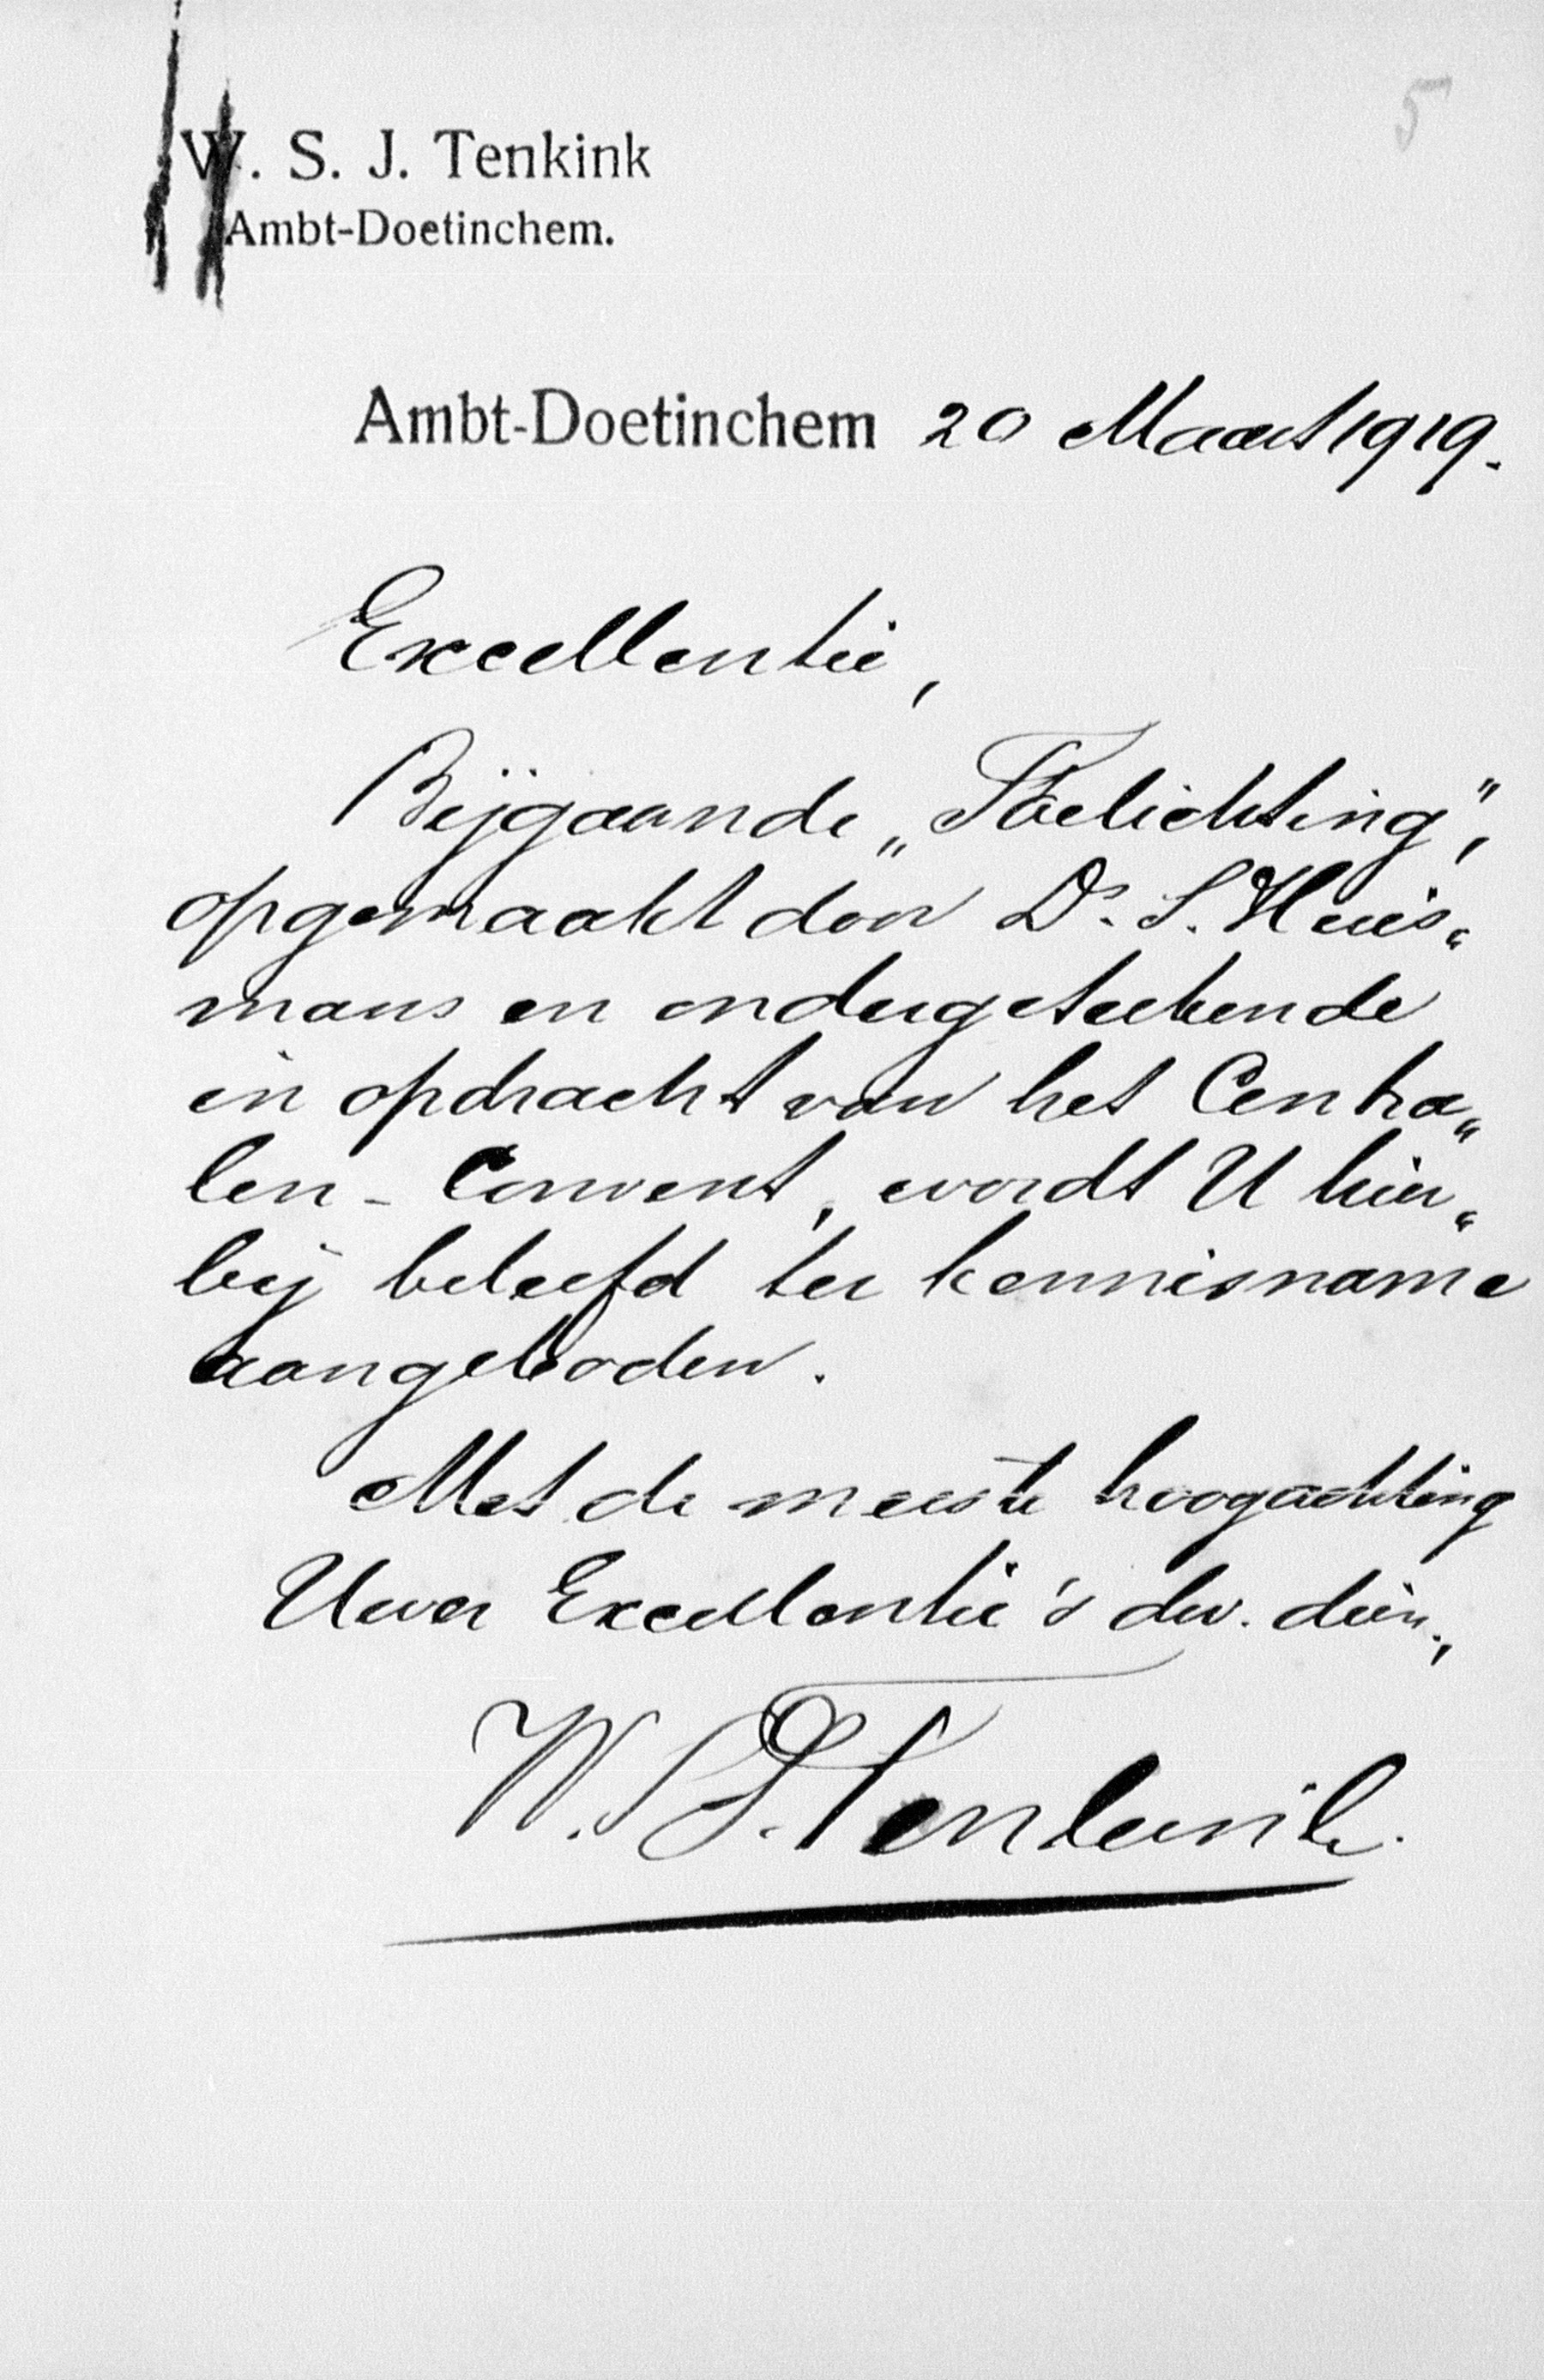 5
W. S. J. Tenkink
Ambt-Doetinchem.
Ambt-Doetinchem 20 Maart 1919.
Excellentie,
Bijgaande „Toelichting",
opgemaakt door Ds. S. Huis„
mans en ondergeteekende
in opdracht van het Centra„
len - Convent, wordt U hier„
bij beleefd ter kennisname
aangeboden.
Met de meeste hoogachting
Uwer Excellentie's dw. dien.,
W. S. J. Tenkink.